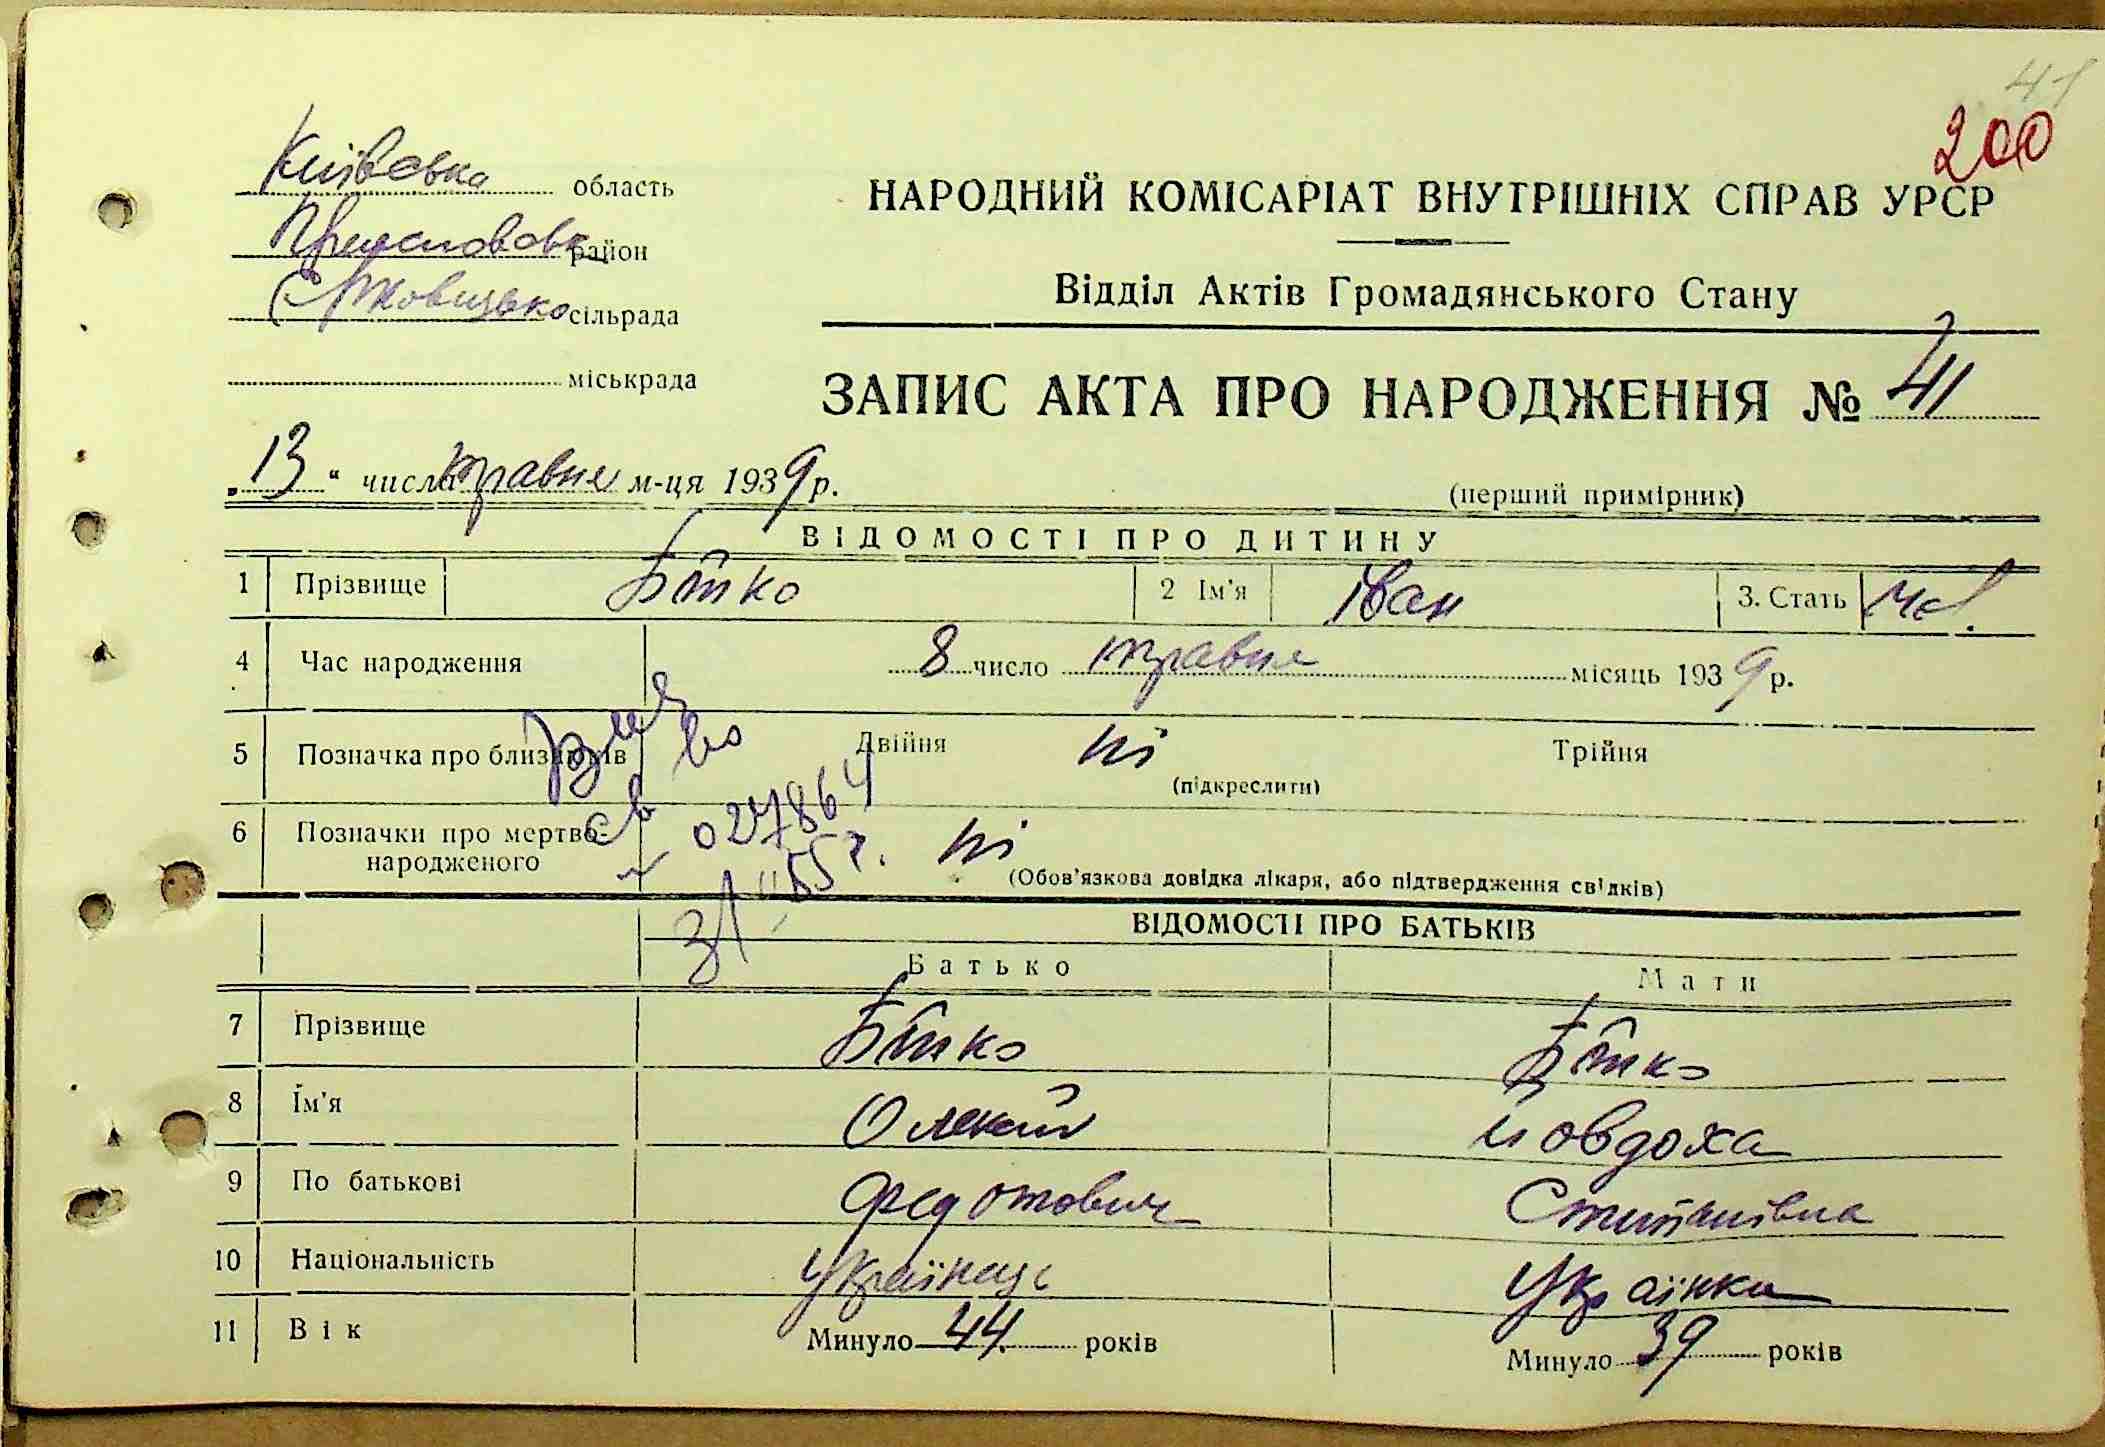 41
200
Київська область
район
сільрада
міськрада
НАРОДНИЙ КОМІСАРІАТ ВНУТРІШНІХ СПРАВ УРСР
Відділ Актів Громадянського Стану
ЗАПИС АКТА ПРО НАРОДЖЕННЯ № 41
„ 13 “ числа травня м-ця 1939 р.
(перший примірник)
ВІДОМОСТІ ПРО ДИТИНУ
1 Прізвище Бітко 2 Ім'я Іван 3. Стать
4 Час народження 8 число травня місяць 1939 р.
5 Позначка про близнюків Двійня ні Трійня
(підкреслити)
6 Позначки про мертво-
народженого ні
(Обов'язкова довідка лікаря, або підтвердження свідків)
св во
027864
55 г.
ВІДОМОСТІ ПРО БАТЬКІВ
Батько Мати
7 Прізвище Бітко Бітко
8 Ім'я Олексій Йовдоха
9 По батькові Федотович Степанівна
10 Національність Українець Українка
11 Вік Минуло 44 років Минуло 39 років